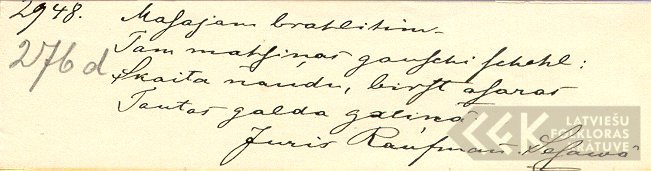 2948. Masajam brahlitim
Tam mahsiņas gauschi schehl:
276d
Skaita naudu, birst asaras
Tautas galda galinā
Juris Kaufman. Lesawā
LATVIEŠU
FOLKLORAS
KRĀTUVE